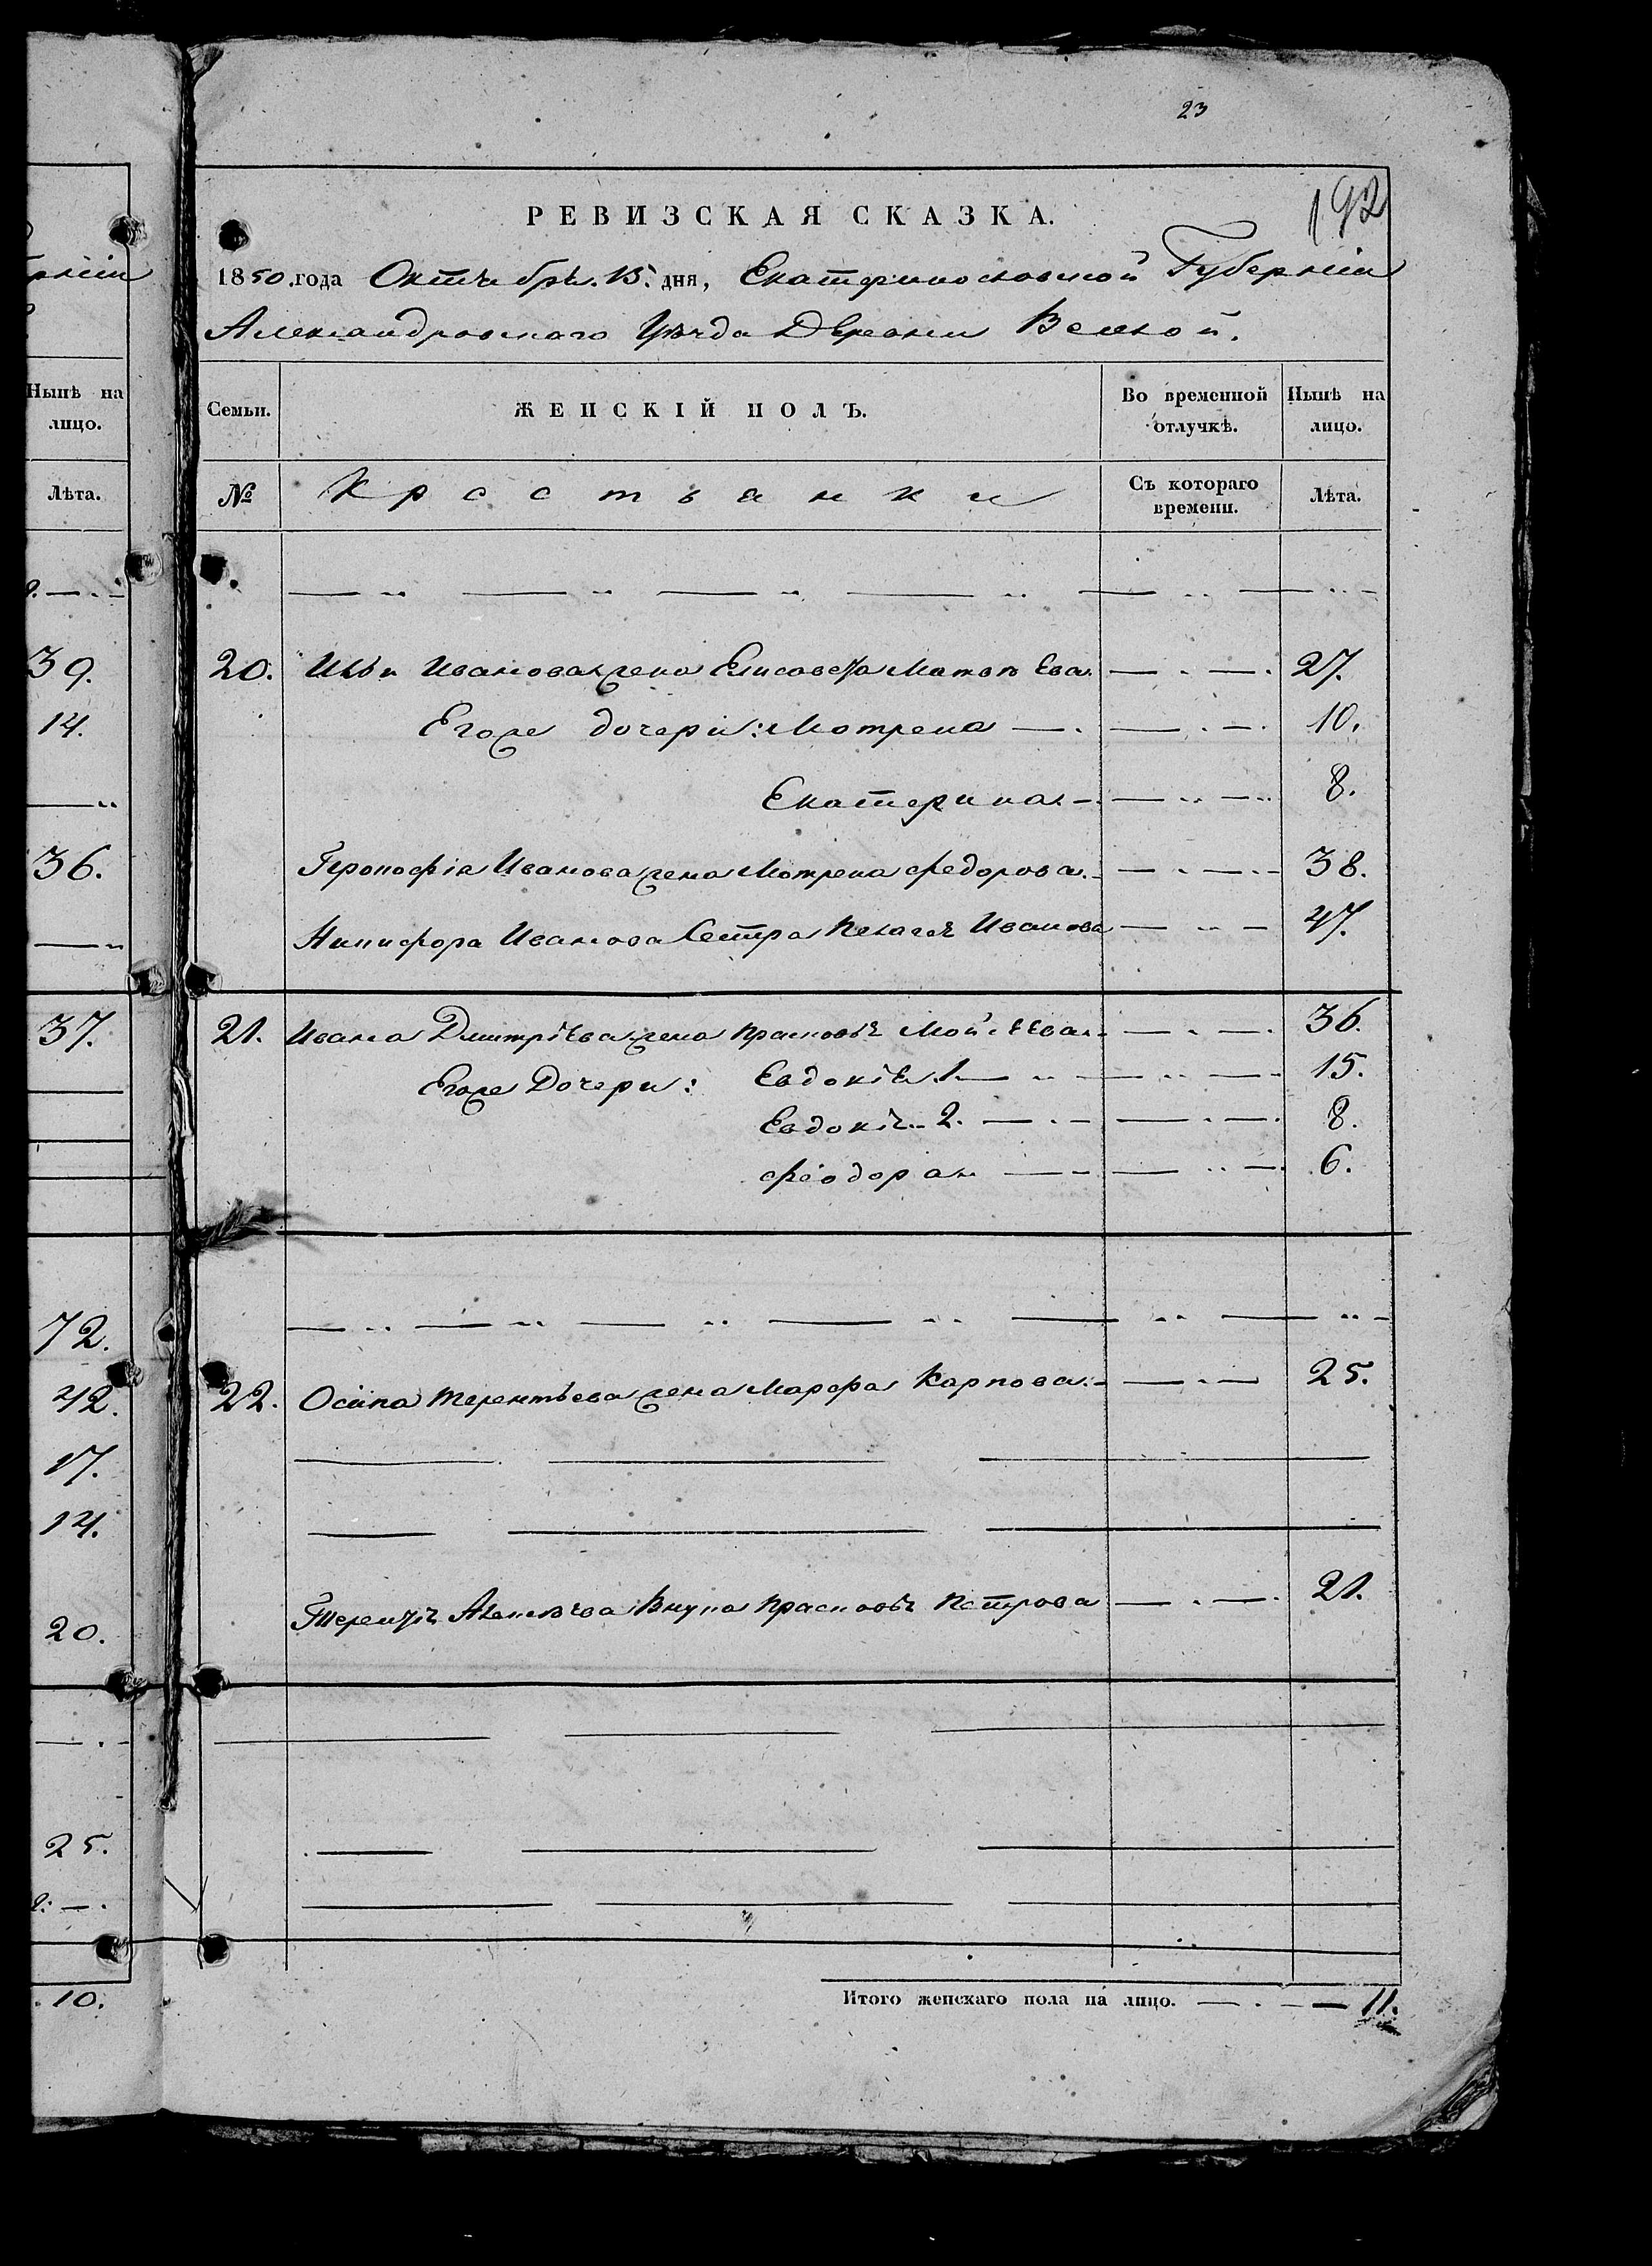 23
192
РЕВИЗСКАЯ СКАЗКА.
1850 года Октября 15. дня, Екатеринославской Губерніи
Александровскаго Уѣзда Деревни Веселой.
Нынѣ на лицо.
Лѣта.
39.
14.
36.
37.
72.
42.
17.
14.
20.
25.
10.
Семьи. ЖЕНСКІЙ ПОЛЪ. Во временной отлучкѣ. Нынѣ на лицо.
№ Крестьянки Съ котораго времени. Лѣта.
20. Ильи Иванова жена Елисавета 27.
Егоже дочери: Мотрена 10.
Екатерина 8.
Иванова жена Мотрена Федорова 38.
Никифора Иванова Сестра Пелагея Иванова 47.
21. Ивана Дмитріева жена Прасковья Мойсѣева 36.
Егоже Дочери: Евдокія 1 15.
Евдокія 2. 8.
Феодора 6.
22. Осипа Терентьева жена Марфа Карпова 25.
Внука Прасковья Петрова 21.
Итого женскаго пола на лицо. 11.